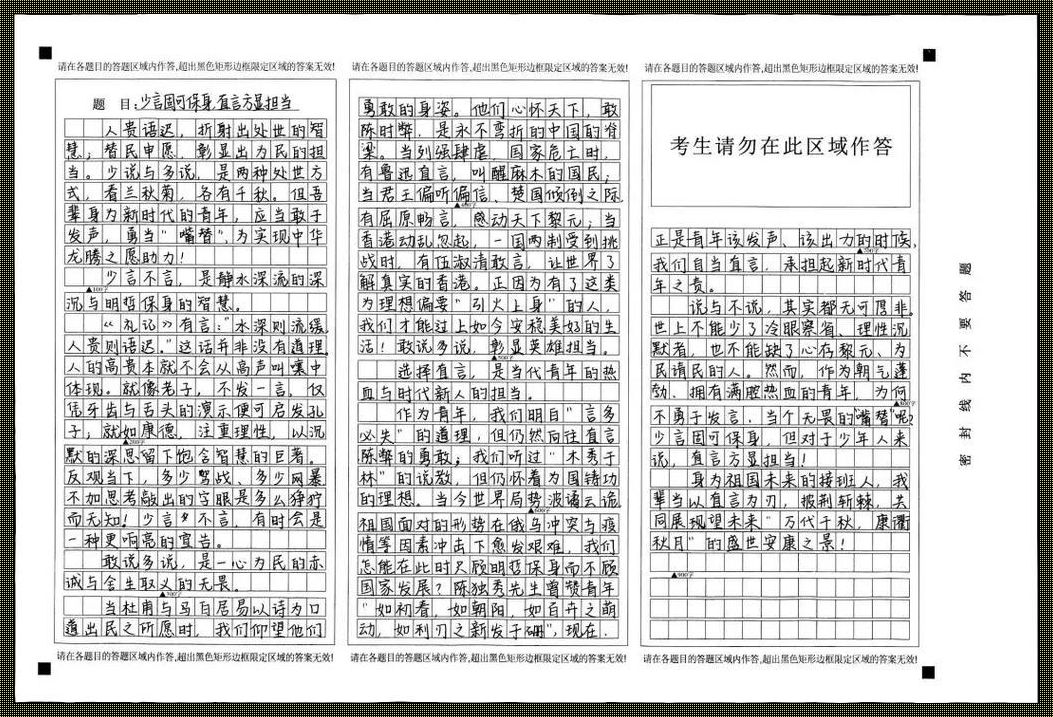 请在各题目的答题区域内作答,超出黑色矩形边框限定区域的答案无效!
题 目:少言固可保身,直言方显担当
人贵语迟，折射出处世的智
慧；替民申愿，彰显出为民的担
当。少说与多说，是两种处世方
式，看兰秋菊，各有千秋。但吾
辈身为新时代的青年，应当敢于
发声，勇当“嘴替”，为实现中华
龙腾之愿助力！
少言不言，是静水深流的深
▲100字
沉与明哲保身的智慧。
《礼记》有言：“水深则流缓，
人贵则语迟。”这话并非没有道理。
人的高贵本就不会从高声叫嚷中
体现。就像老子，不发一言，仅
凭牙齿与舌头的演示便可启发孔
子；就如康德，注重理性，以沉
▲200字
默的深思留下饱含智慧的巨著。
反观当下，多少骂战、多少网暴
不加思考敲出的字眼是多么狰狞
而无知！少言不言，有时会是
一种更响亮的宣告。
敢说多说，是一心为民的赤
诚与舍生取义的无畏。
▲300字
当杜甫与马白居易以诗为口
道出民之所愿时，我们仰望他们
请在各题目的答题区域内作答,超出黑色矩形边框限定区域的答案无效!
请在各题目的答题区域内作答,超出黑色矩形边框限定区域的答案无效!
勇敢的身姿。他们心怀天下，敢
陈时弊，是永不弯折的中国的脊
梁。当列强肆虐、国家危亡时，
有鲁迅直言，叫醒麻木的国民；
当君王偏听偏信、楚国倾倒之际
▲400字
有屈原畅言，感动天下黎元；当
香港动乱忽起，一国两制受到挑
战时，有伍淑清敢言，让世界了
解真实的香港。正因为有了这类
为理想偏要“引火上身”的人，
我们才能过上如今安稳美好的生
活！敢说多说，彰显英雄担当。
▲500字
选择直言，是当代青年的热
血与时代新人的担当。
作为青年，我们明白“言多
必失”的道理，但仍然向往直言
陈弊的勇敢；我们听过“木秀于
林”的说教，但仍怀着为国铸功
的理想。当今世界局势波谲云诡，
▲600字
祖国面对的形势在俄乌冲突与疫
情等因素冲击下愈发艰难，我们
怎能在此时只顾明哲保身而不顾
国家发展？陈独秀先生曾赞青年
“如初春，如朝阳，如百卉之萌
动，如利刃之新发于硎”，现在，
请在各题目的答题区域内作答,超出黑色矩形边框限定区域的答案无效!
请在各题目的答题区域内作答,超出黑色矩形边框限定区域的答案无效!
考生请勿在此区域作答
正是青年该发声、该出力的时候，
▲700字
我们自当直言，承担起新时代青
年之责。
说与不说，其实都无可厚非。
世上不能少了冷眼察省、理性沉
默者，也不能缺了心存黎元、为
民请民的人。然而，作为朝气蓬
勃、拥有满腔热血的青年，为何
▲800字
不勇于发言，当个无畏的“嘴替”呢？
少言固可保身，但对于少年人来
说，直言方显担当！
身为祖国未来的接班人，我
辈当以直言为刃，披荆斩棘，共
同展现望未来“万代千秋，康衢
秋月”的盛世安康之景！
▲900字
请在各题目的答题区域内作答,超出黑色矩形边框限定区域的答案无效!
密封线内不要答题